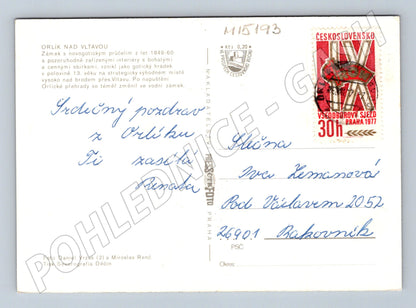 M15193
ORLÍK NAD VLTAVOU
Zámek s novogotickým průčelím z let 1849-60
a pozoruhodně zařízenými interiéry s bohatými
a cennými sbírkami, vznikl jako gotický hrádek
v polovině 13. věku na strategicky výhodném místě
vysoko nad brodem přes Vltavu. Po napuštění
Orlické přehrady se téměř zmizel ve vodní zámek.
Srdečný pozdrav
z Orlíku
Ti zasílá
Renata
KČS 0,20
PRAHA
ČESKOSLOVENSKO
IX
VŠEODBOROVÝ SJEZD
PRAHA 1977
30h
Slečna
Iva Zemanová
Pod Václavem 2052
26901 Rakovník
PSČ
Okres:
Foto Daniel Vrzák (2) a Miroslav Renč
Tisk Severografia Děčín
POHLEDNICE-GRŮH